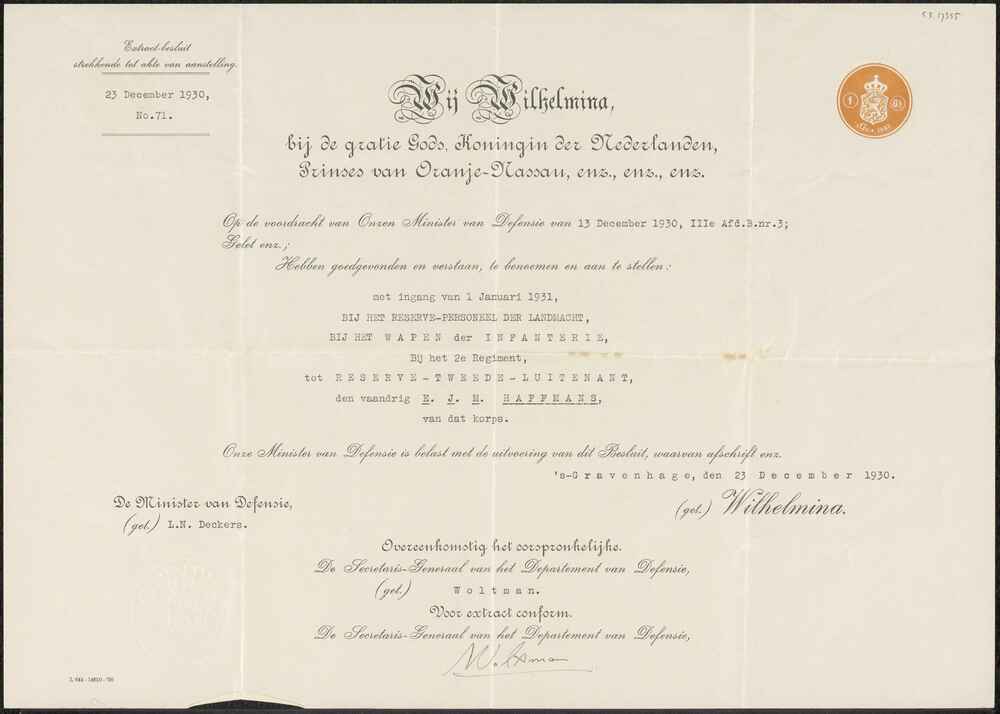 53.17355
Extract-besluit
strekkende tot akte van aanstelling.
23 December 1930,
No.71.
Wij Wilhelmina,
bij de gratie Gods, Koningin der Nederlanden,
Prinses van Oranje-Nassau, enz., enz., enz.
Op de voordracht van Onzen Minister van Defensie van 13 December 1930, IIIe Afd.B.nr.3;
Gelet enz.;
Hebben goedgevonden en verstaan, te benoemen en aan te stellen:
met ingang van 1 Januari 1931,
BIJ HET RESERVE-PERSONEEL DER LANDMACHT,
BIJ HET WAPEN der INFANTERIE,
Bij het 2e Regiment,
tot RESERVE-TWEEDE-LUITENANT,
den vaandrig E. J. M. HAFFMANS,
van dat korps.
Onze Minister van Defensie is belast met de uitvoering van dit Besluit, waarvan afschrift enz.
's-Gravenhage, den 23 December 1930.
De Minister van Defensie,
(get.) L.N. Deckers.
(get.) Wilhelmina.
Overeenkomstig het oorspronkelijke.
De Secretaris-Generaal van het Departement van Defensie,
(get.) Woltman.
Voor extract conform.
De Secretaris-Generaal van het Departement van Defensie,
Woltman